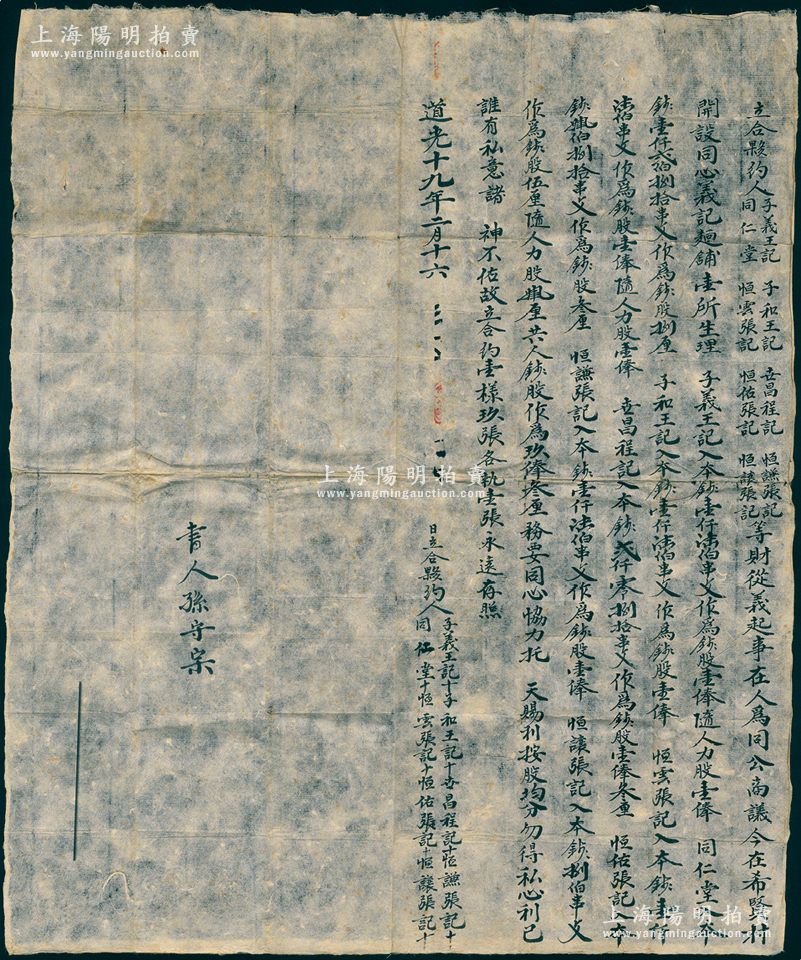 上海陽明拍賣
www.yangmingauction.com
立合夥約人子義王記 子和王記 世昌程記 恒謙張記
同仁堂 恒雲張記 恒佑張記 恒讓張記等財從義起事在人為同公商議今在希賢村
開設同心義記麵鋪壹所生理 子義王記入本錢壹仟柒佰串文作為錢股壹俸隨人力股壹俸 同仁堂入本
錢壹仟弍佰捌拾串文作為錢股捌厘 子和王記入本錢壹仟柒佰串文作為錢股壹俸 恒雲張記入本錢壹仟
柒佰串文作為錢股壹俸隨人力股壹俸 世昌程記入本錢弍仟零捌拾串文作為錢股壹俸叁厘 恒佑張記入本
錢肆佰捌拾串文作為錢股叁厘 恒謙張記入本錢壹仟柒佰串文作為錢股壹俸 恒讓張記入本錢捌佰串文
作為錢股伍厘隨人力股肆厘共人錢股作為玖俸叁厘務要同心協力托 天賜利按股均分勿得私心利己
誰有私意諸 神不佑故立合約壹樣玖張各執壹張永遠存照
道光十九年二月十六
日立合夥約人子義王記十子和王記十世昌程記十恒謙張記十
同仁堂十恒雲張記十恒佑張記十恒讓張記十
書人孫守宗
上海陽明拍賣
www.yangmingauction.com
上海陽明拍賣
www.yangmingauction.com